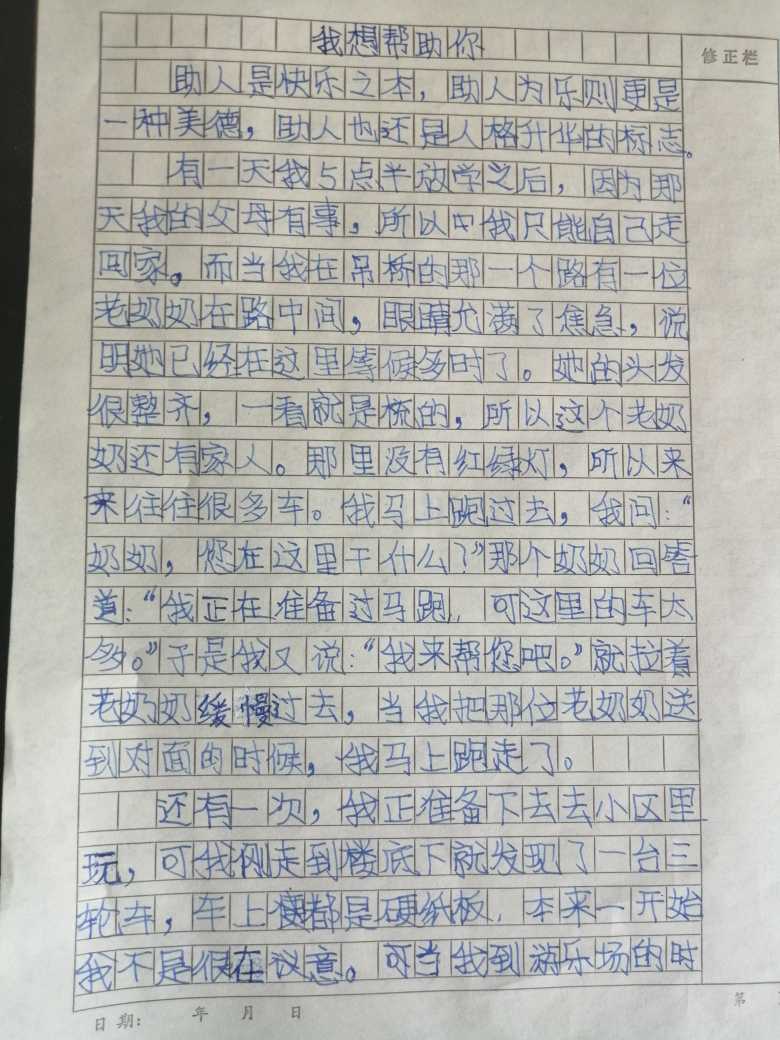 我想帮助你
修正栏
助人是快乐之本，助人为乐则更是
一种美德，助人也还是人格升华的标志。
有一天我5点半放学之后，因为那
天我的父母有事，所以中我只能自己走
回家。而当我在吊桥的那一个路有一位
老奶奶在路中间，眼睛充满了焦急，说
明她已经在这里等候多时了。她的头发
很整齐，一看就是梳的，所以这个老奶
奶还有家人。那里没有红绿灯，所以来
来往往很多车。我马上跑过去，我问：“
奶奶，您在这里干什么？”那个奶奶回答
道：“我正在准备过马跑，可这里的车太
多。”于是我又说：“我来帮您吧。”就拉着
老奶奶缓慢过去，当我把那位老奶奶送
到对面的时候，我马上跑走了。
还有一次，我正准备下去去小区里
玩，可我刚走到楼底下就发现了一台三
轮车，车上都是硬纸板，本来一开始
我不是很在议意。可当我到游乐场的时
日期： 年 月 日
第